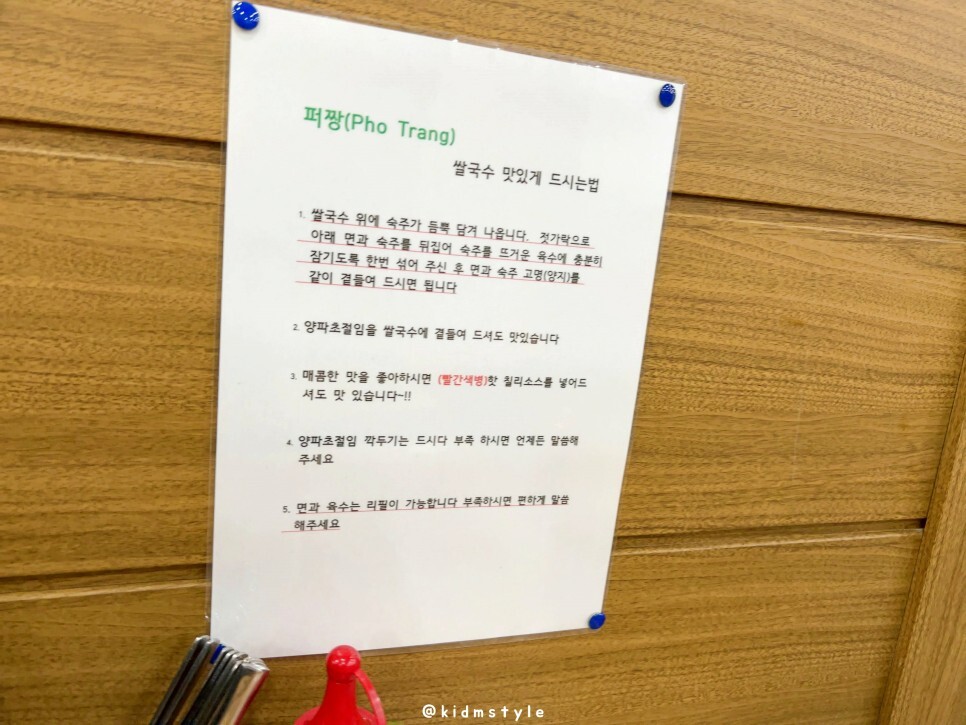 퍼짱(Pho Trang)
쌀국수 맛있게 드시는법
1. 쌀국수 위에 숙주가 듬뿍 담겨 나옵니다. 젓가락으로
아래 면과 숙주를 뒤집어 숙주를 뜨거운 육수에 충분히
잠기도록 한번 섞어 주신 후 면과 숙주 고명(양지)를
같이 곁들여 드시면 됩니다
2. 양파초절임을 쌀국수에 곁들여 드셔도 맛있습니다
3. 매콤한 맛을 좋아하시면 (빨간색병)핫 칠리소스를 넣어드
셔도 맛 있습니다~!!
4. 양파초절임 깍두기는 드시다 부족 하시면 언제든 말씀해
주세요
5. 면과 육수는 리필이 가능합니다 부족하시면 편하게 말씀
해주세요
@kidmstyle